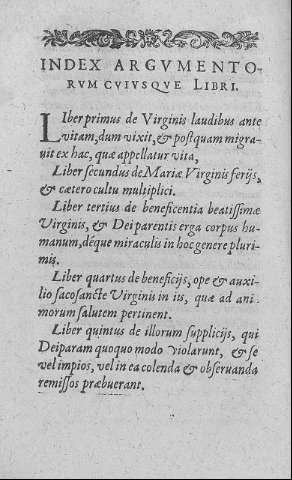 INDEX ARGVMENTO-
RVM CVIVSQVE LIBRI.
LIber primus de Virginis laudibus ante
vitam, dum vixit, & postquam migra-
uit ex hac, quæ appellatur vita,
Liber secundus de Mariæ Virginis ferijs,
& cætero cultu multiplici.
Liber tertius de beneficentia beatissimæ
Virginis, & Dei parentis erga corpus hu-
manum, déque miraculis in hoc genere pluri-
mis.
Liber quartus de beneficijs, ope & auxi-
lio sacosanctę Virginis in iis, quæ ad ani-
morum salutem pertinent.
Liber quintus de illorum supplicijs, qui
Deiparam quoquo modo violarunt, & se
vel impios, vel in ea colenda & obseruanda
remissos præbuerant.